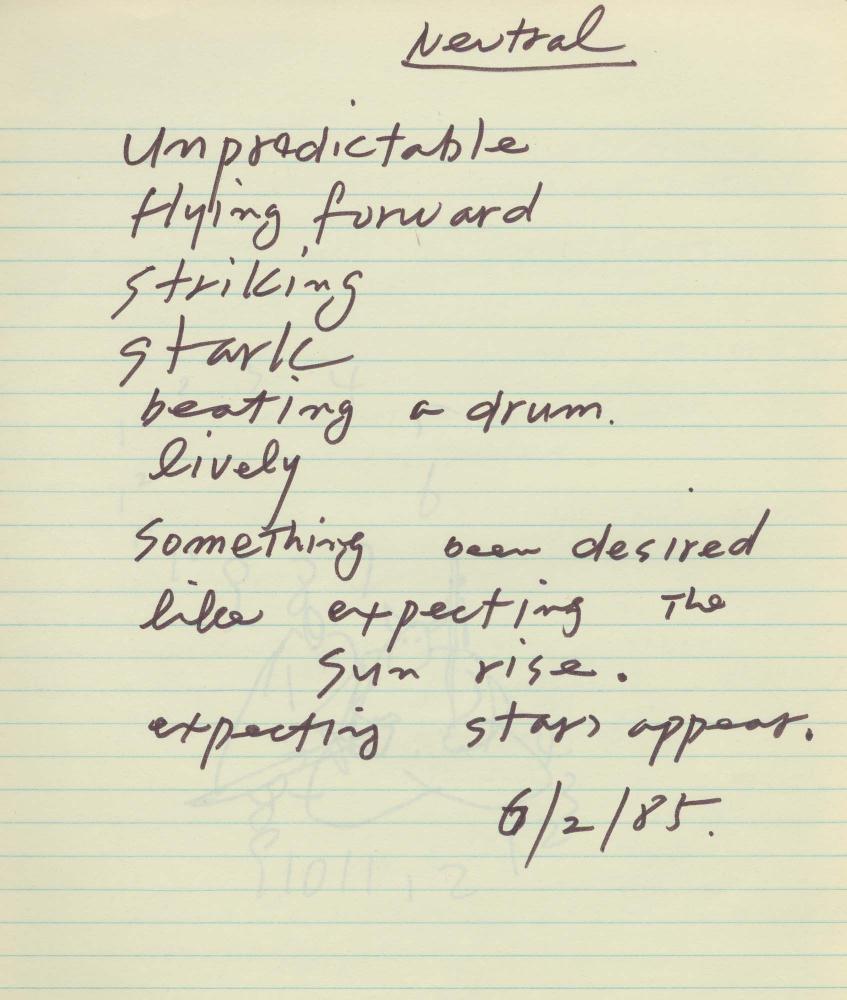 Neutral
Unpredictable
flying forward
striking
stark
beating a drum.
lively
Something been desired
like expecting The
Sun rise.
expecting stars appear.
6/2/85.